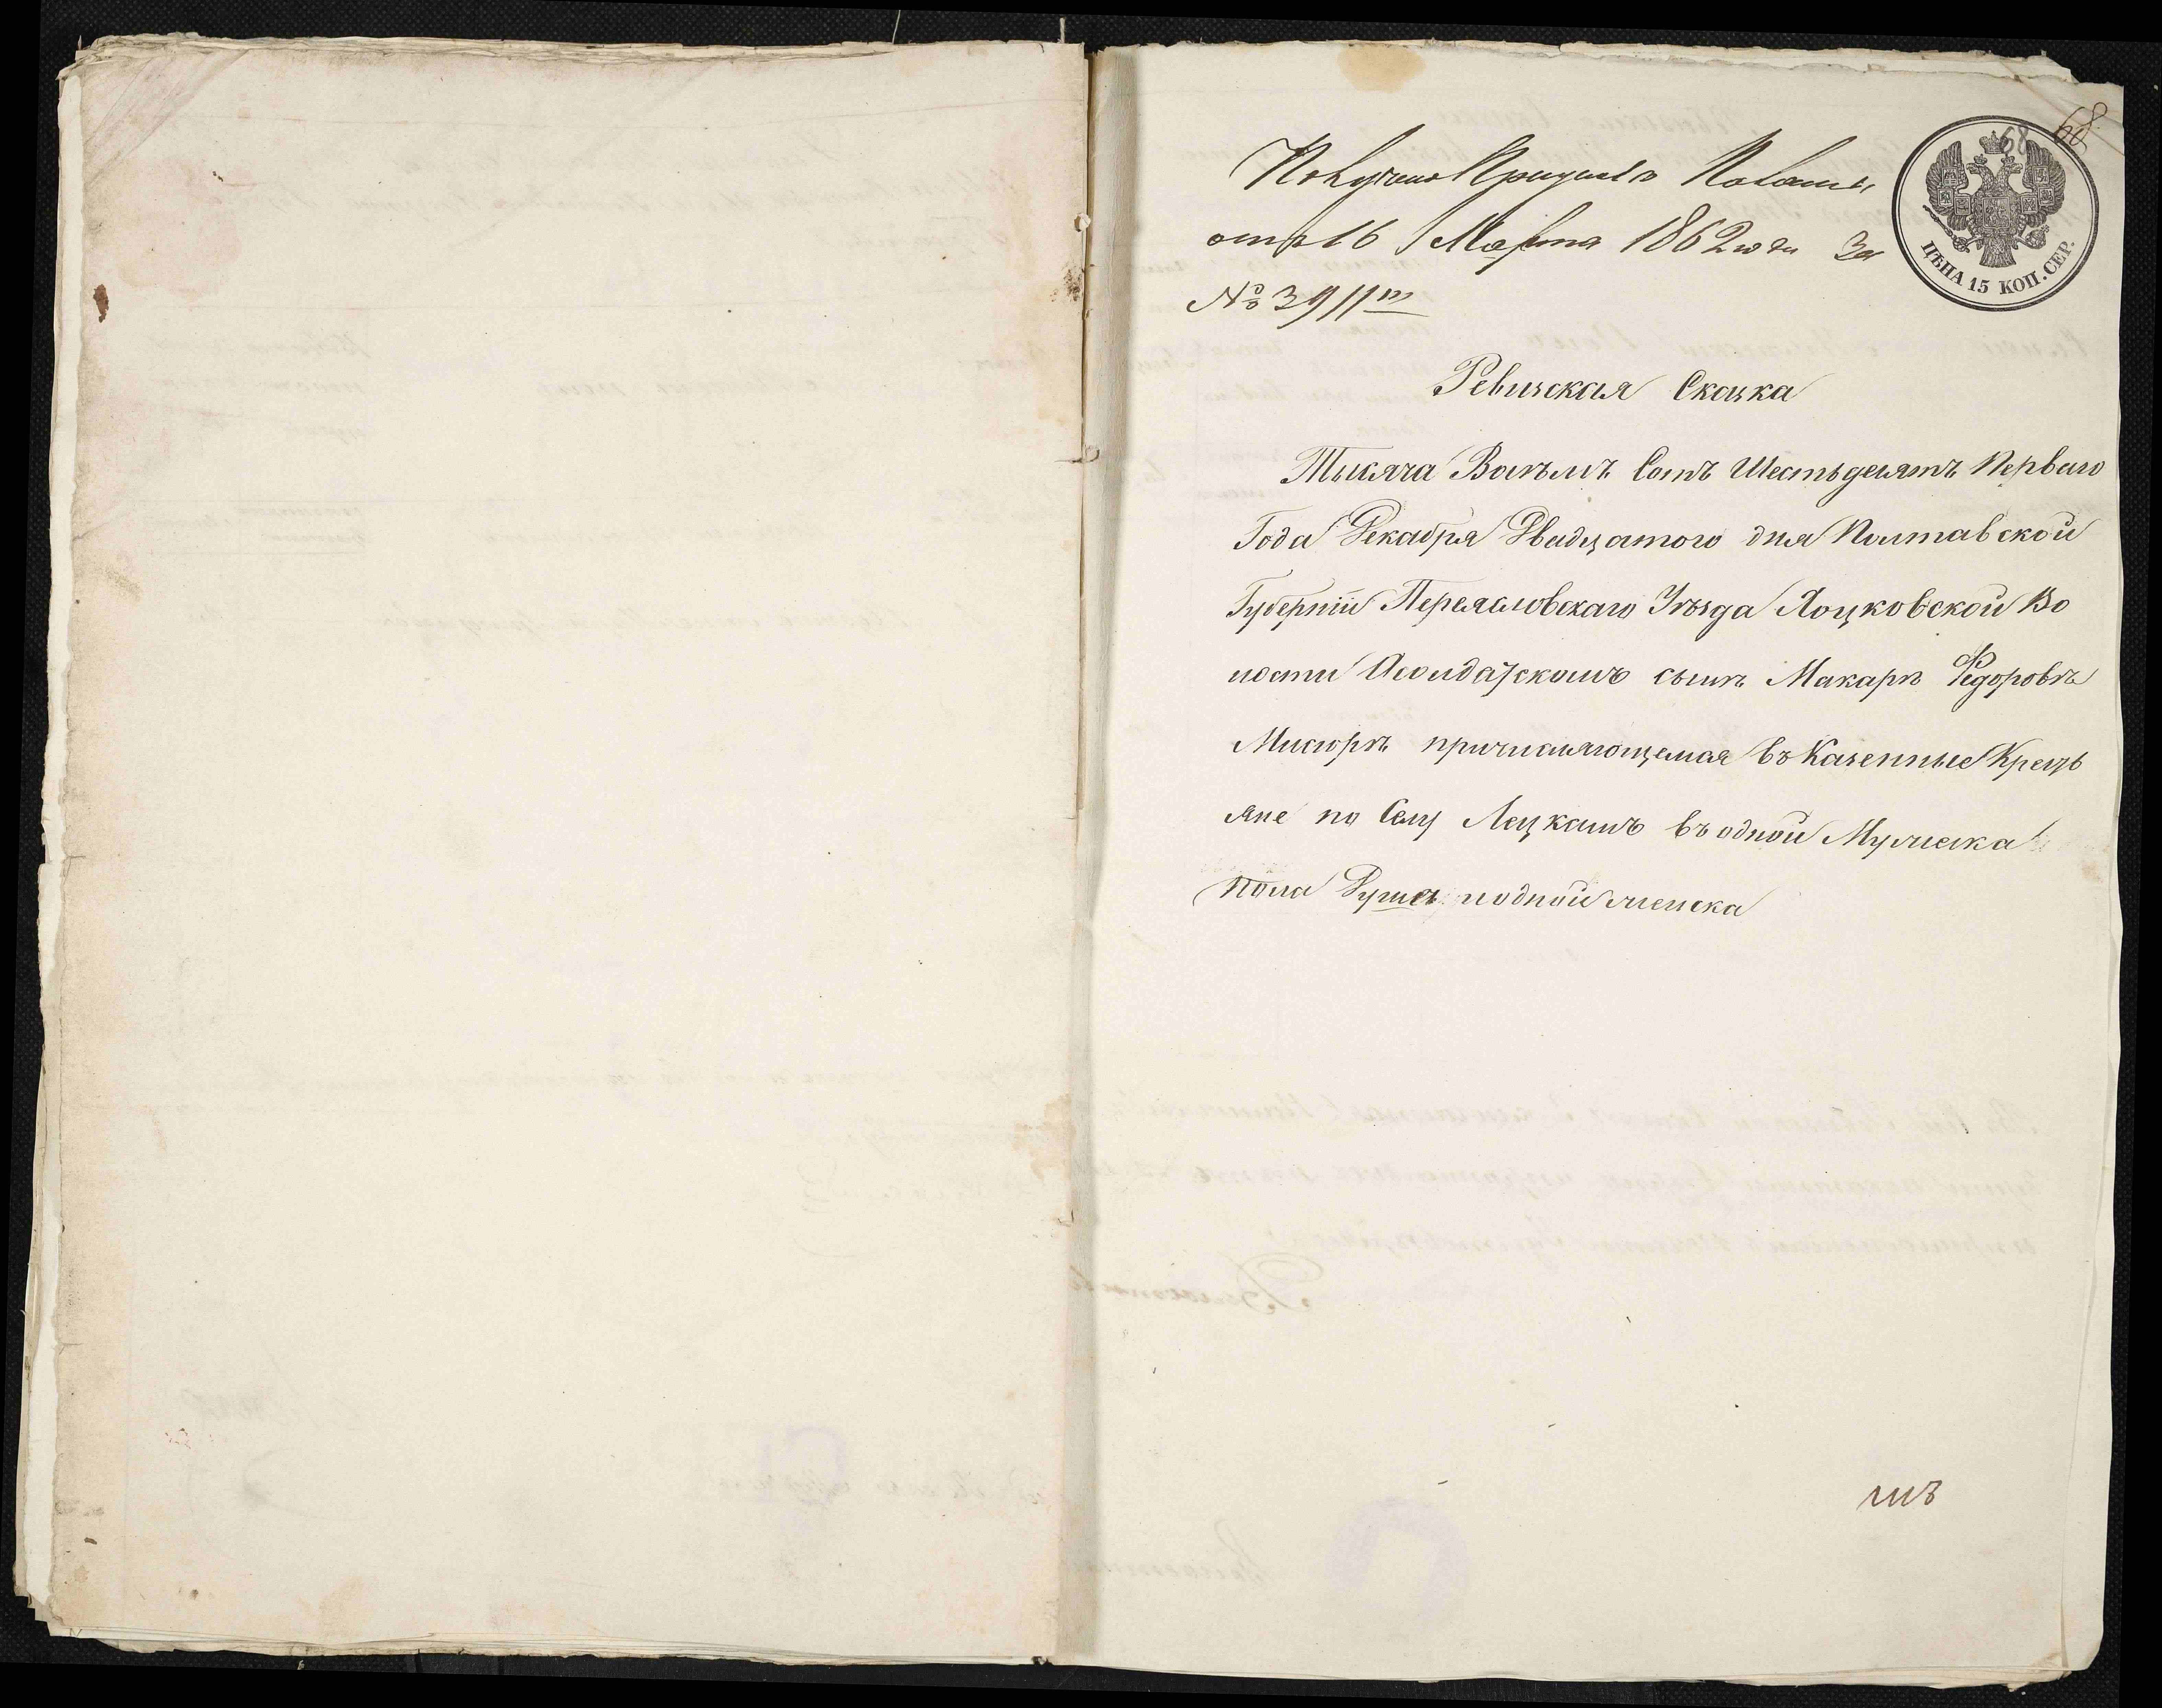 68
68
По Указу Казенной Палаты
отъ 16 Марта 1862 года за
№ 3911м
ЦѢНА 15 КОП. СЕР.
Ревизская Сказка
Тысяча Восѣмъ Сотъ Шестьдесятъ Перваго
Года Декабря Двадцатого дня Полтавской
Губерніи Переяславскаго Уѣзда Лоцковской Во
лости Асолдатскомъ сынъ Макаръ Федоровъ
Мисюръ причисляющемся въ Казенные Крестъ
яне по Селу Лецкамъ въ одной Мужеска
пола Душѣ и одной женска